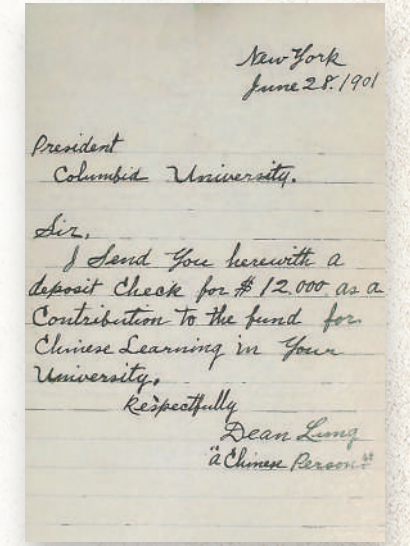 New York
June 28. 1901
President
Columbia University.
Sir,
I Send You herewith a
deposit Check for $ 12.000 as a
Contribution to the fund for
Chinese Learning in Your
University.
Respectfully
Dean Lung
"a Chinese Person"